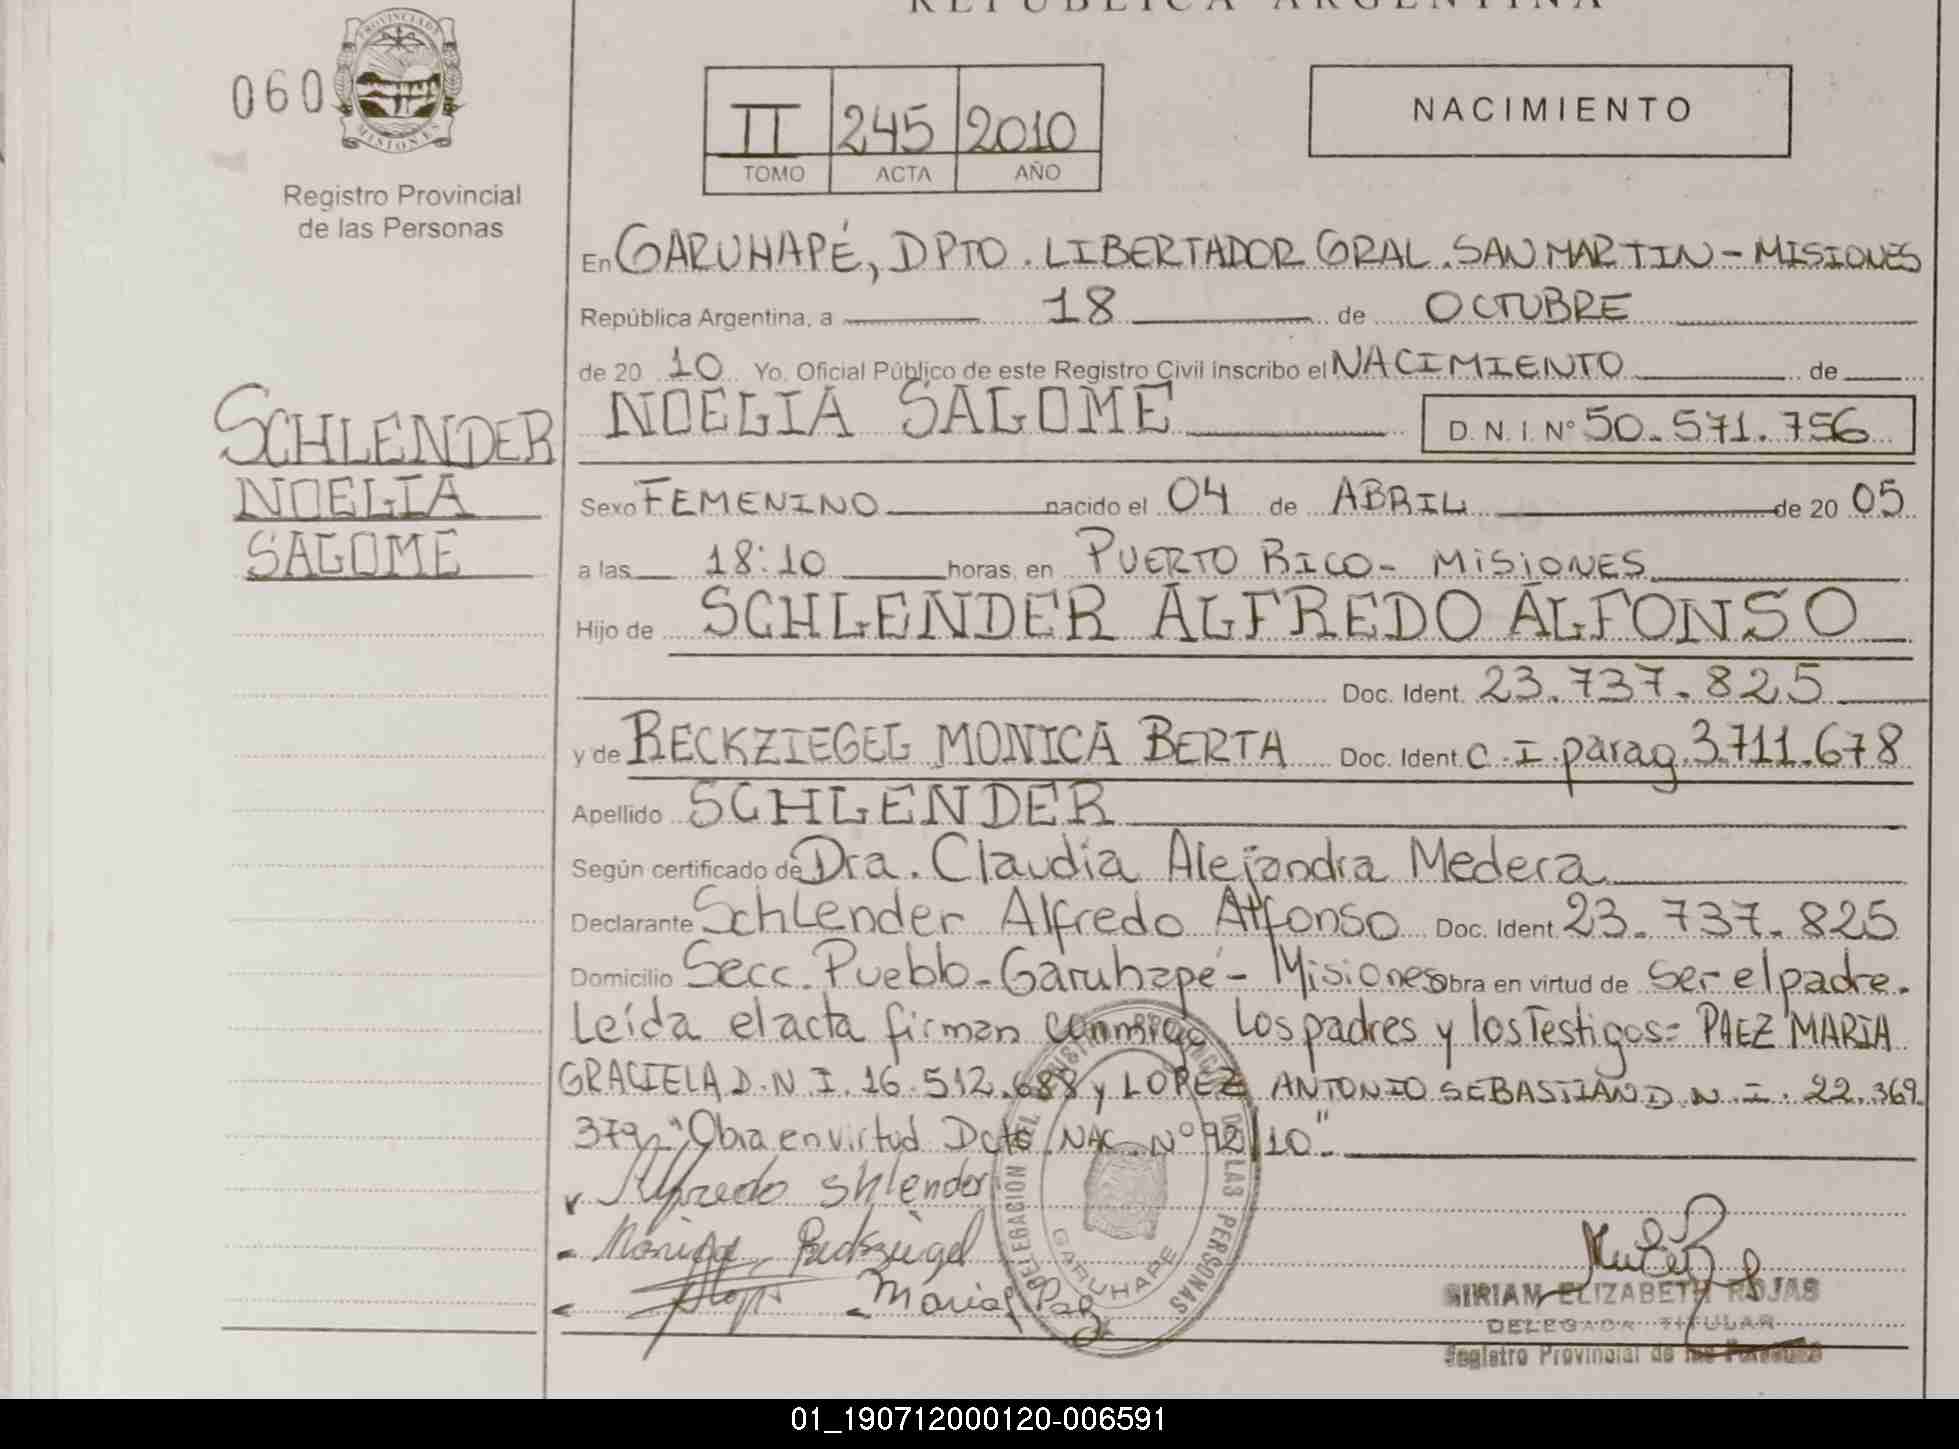 REPÚBLICA ARGENTINA
060
PROVINCIA DE MISIONES
Registro Provincial
de las Personas
II 245 2010
TOMO ACTA AÑO
NACIMIENTO
En GARUHAPÉ, DPTO. LIBERTADOR GRAL. SAN MARTIN - MISIONES
República Argentina, a 18 de OCTUBRE
de 20 10 Yo, Oficial Público de este Registro Civil inscribo el NACIMIENTO de
NOELIA SALOME D. N. I. Nº 50.571.756
SCHLENDER
NOELIA
SALOME
Sexo FEMENINO nacido el 04 de ABRIL de 20 05
a las 18:10 horas, en PUERTO RICO - MISIONES
Hijo de SCHLENDER ALFREDO ALFONSO
Doc. Ident. 23.737.825
y de RECKZIEGEL MONICA BERTA Doc. Ident. C.I. parag. 3.711.678
Apellido SCHLENDER
Según certificado de Dra. Claudia Alejandra Medera
Declarante Schlender Alfredo Alfonso Doc. Ident. 23.737.825
Domicilio Secc. Pueblo - Garuhapé - Misiones Obra en virtud de ser el padre.
Leída el acta firman conmigo Los padres y los Testigos= PAEZ MARIA
GRACIELA D.N.I. 16.512.688 y LOPEZ ANTONIO SEBASTIAN D.N.I. 22.369.
379,, "Obra en virtud Dcto. NAC. Nº 92/10".
Alfredo Shlender
Monica Reckziegel
Maria Paez
DELEGACION DEL REGISTRO PROVINCIAL DE LAS PERSONAS
GARUHAPE
MIRIAM ELIZABETH ROJAS
DELEGADA TITULAR
Registro Provincial de las Personas
01_190712000120-006591